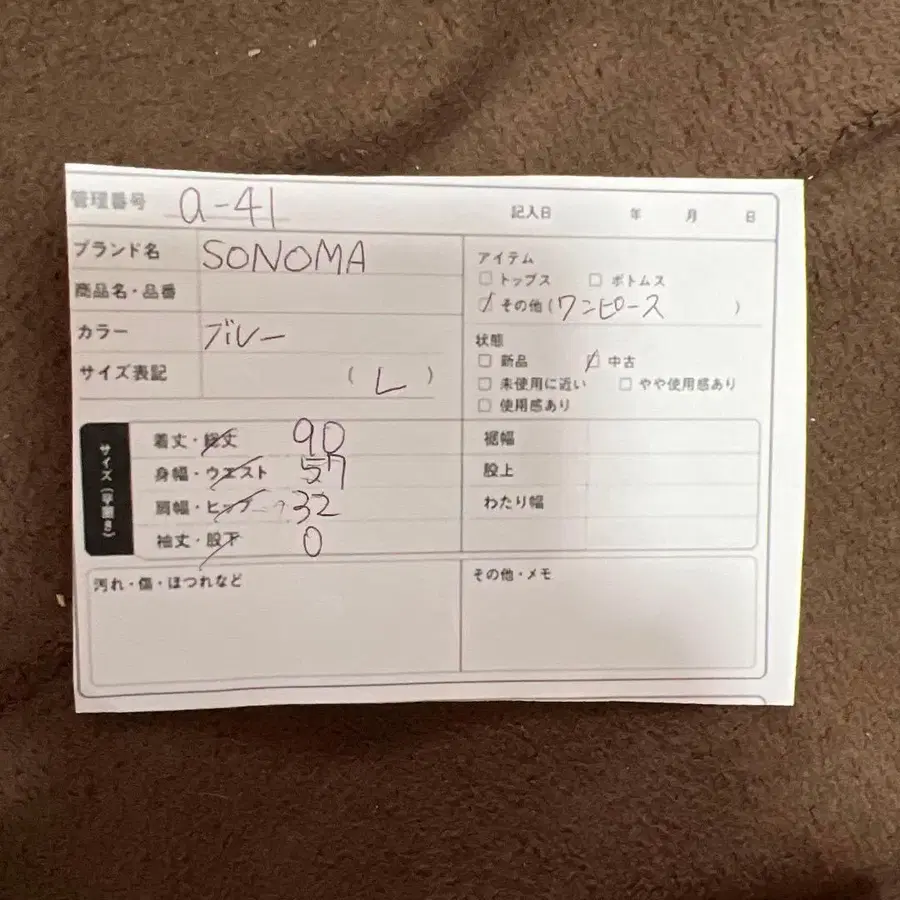 管理番号 a-41 記入日 年 月 日
ブランド名 SONOMA
商品名・品番
カラー ブルー
サイズ表記 ( L )
アイテム
□トップス □ボトムス
☑その他(ワンピース )
状態
□新品 ☑中古
□未使用に近い □やや使用感あり
□使用感あり
サイズ(平置き)
着丈・総丈 90
身幅・ウエスト 57
肩幅・ヒップ 32
袖丈・股下 0
裾幅
股上
わたり幅
汚れ・傷・ほつれなど
その他・メモ